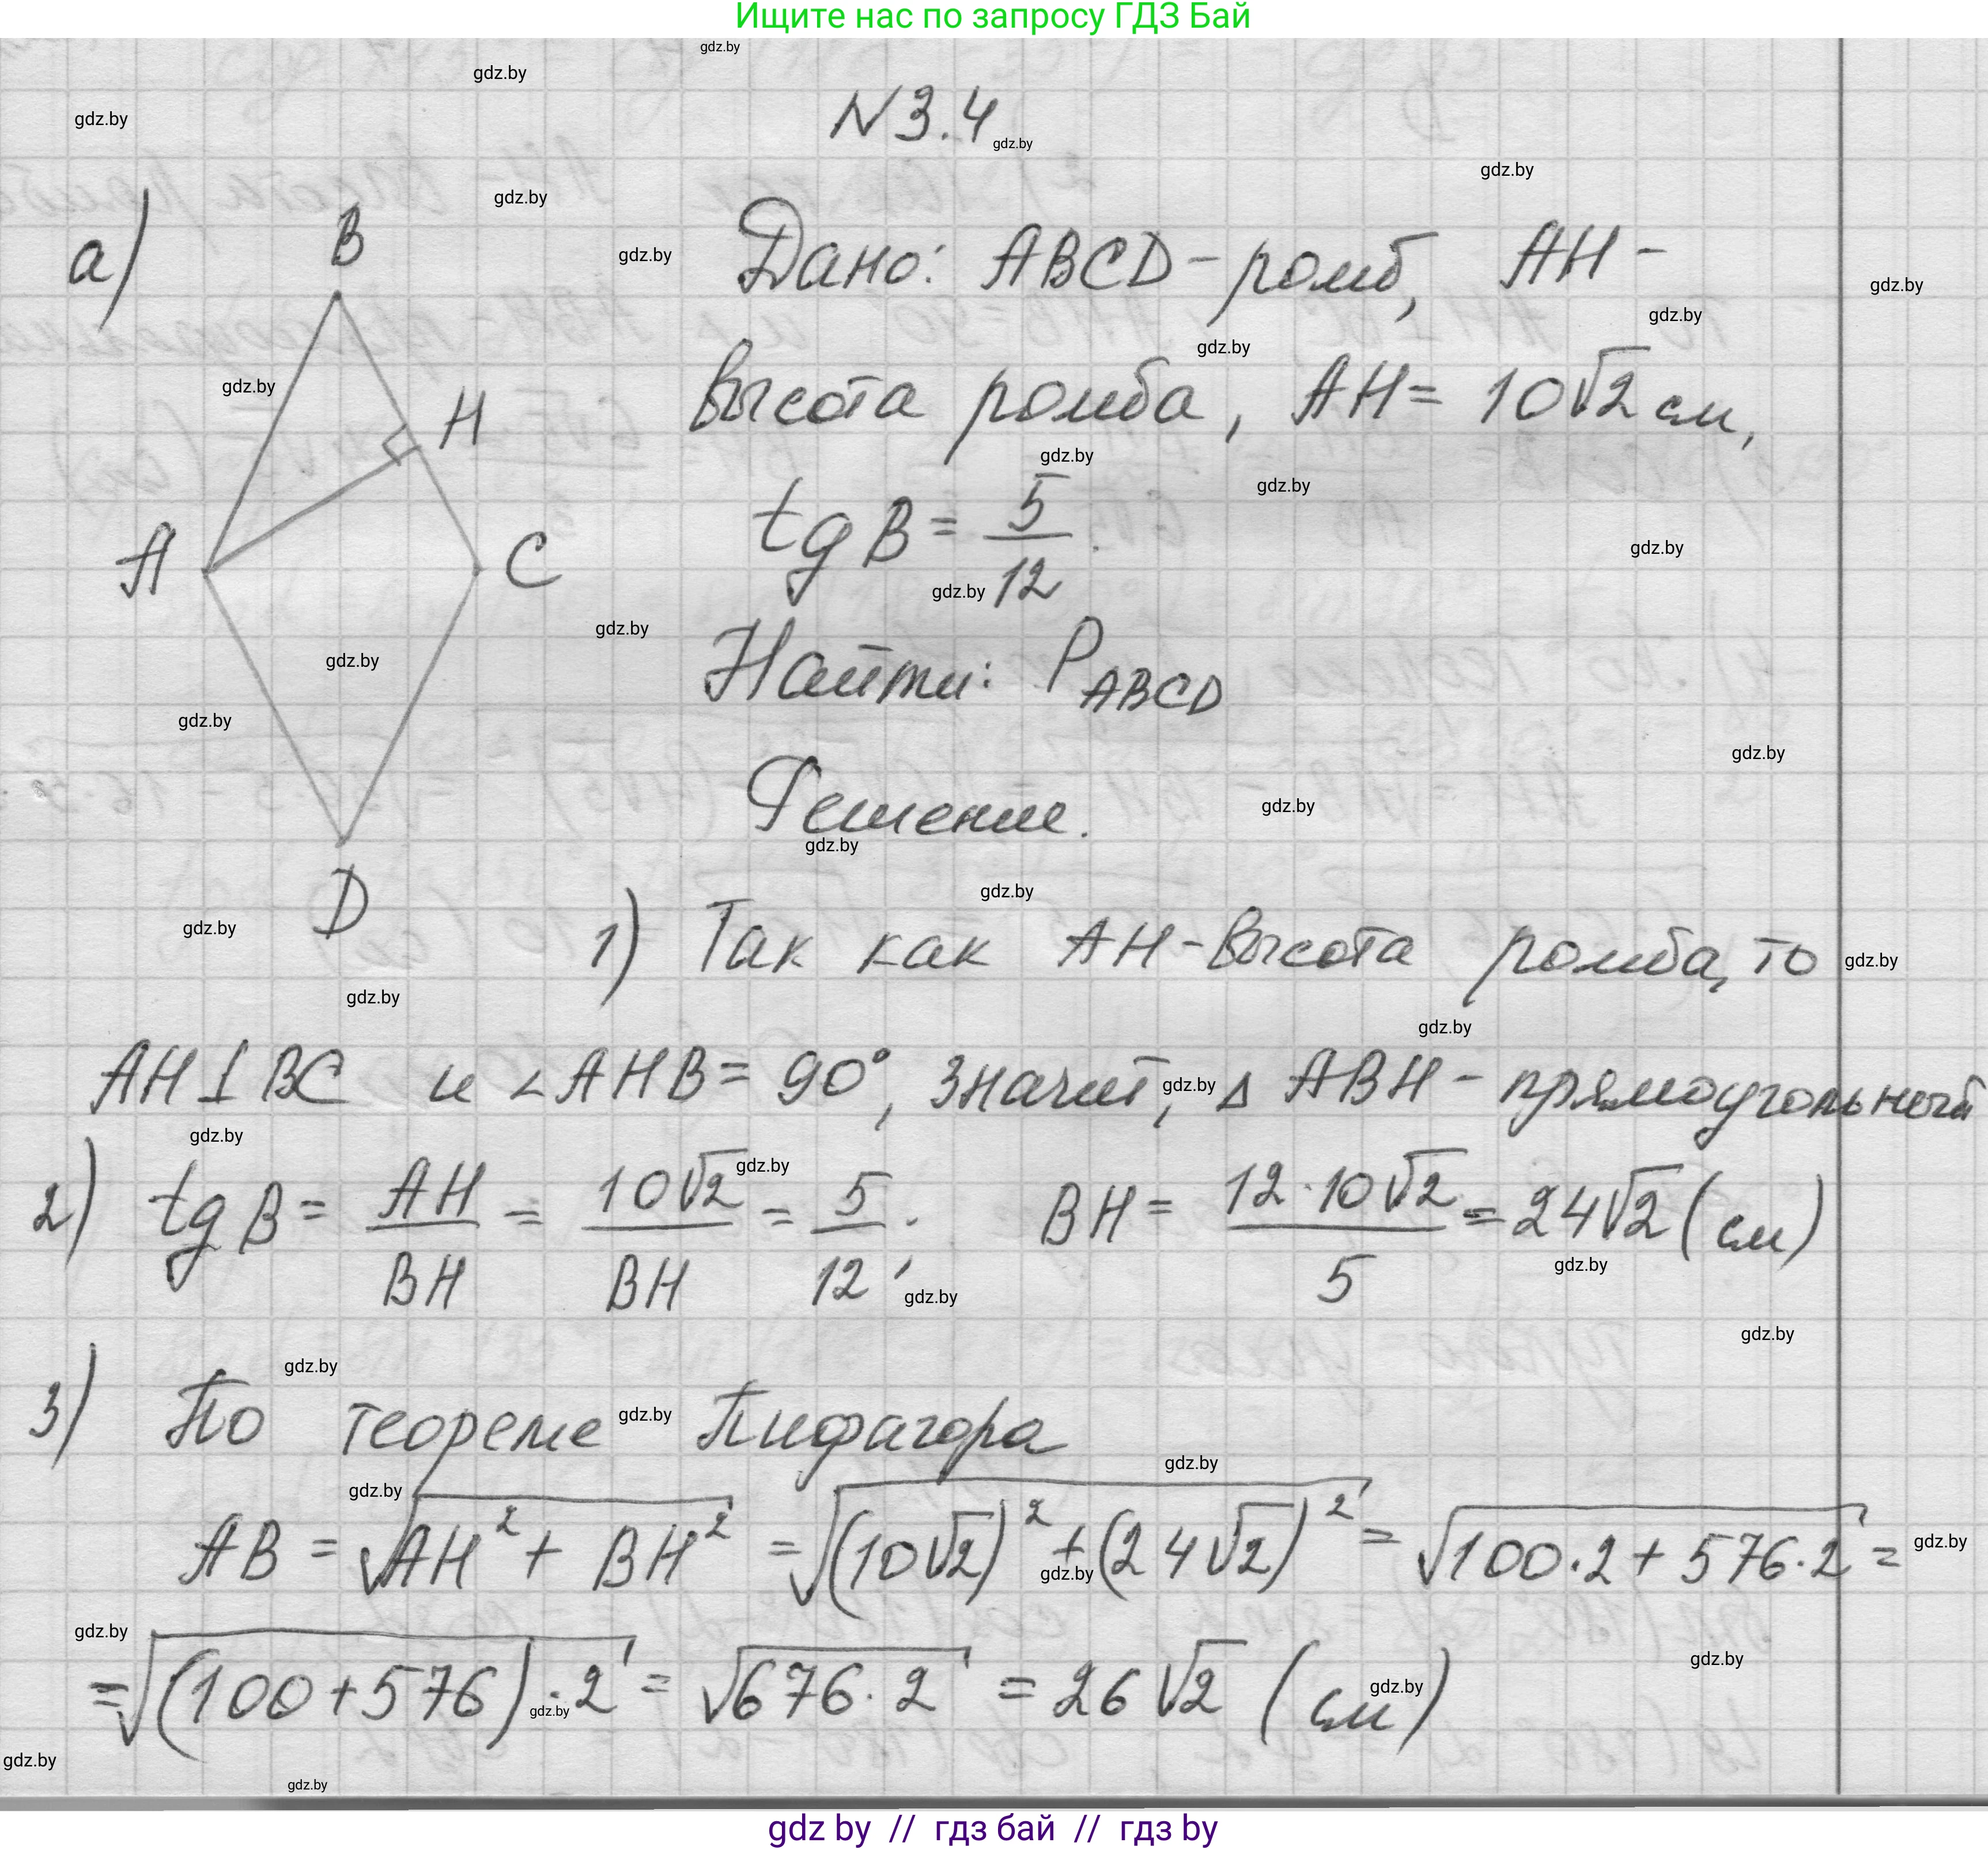 Ищите нас по запросу ГДЗ Бай
N3.4
а)
B
H
A
C
D
Дано: ABCD - ромб, AH -
высота ромба, AH = 10√2 см,
tg B = 5/12.
Найти: P_ABCD
Решение.
1) Так как AH - высота ромба, то
AH ⊥ BC и ∠AHB = 90°, значит, △ ABH - прямоугольный
2) tg B = AH/BH = 10√2/BH = 5/12; BH = 12·10√2/5 = 24√2 (см)
3) По теореме Пифагора
AB = √(AH² + BH²) = √((10√2)² + (24√2)²) = √(100·2 + 576·2) =
= √((100+576)·2) = √(676·2) = 26√2 (см)
gdz by // гдз бай // гдз by
gdz.by